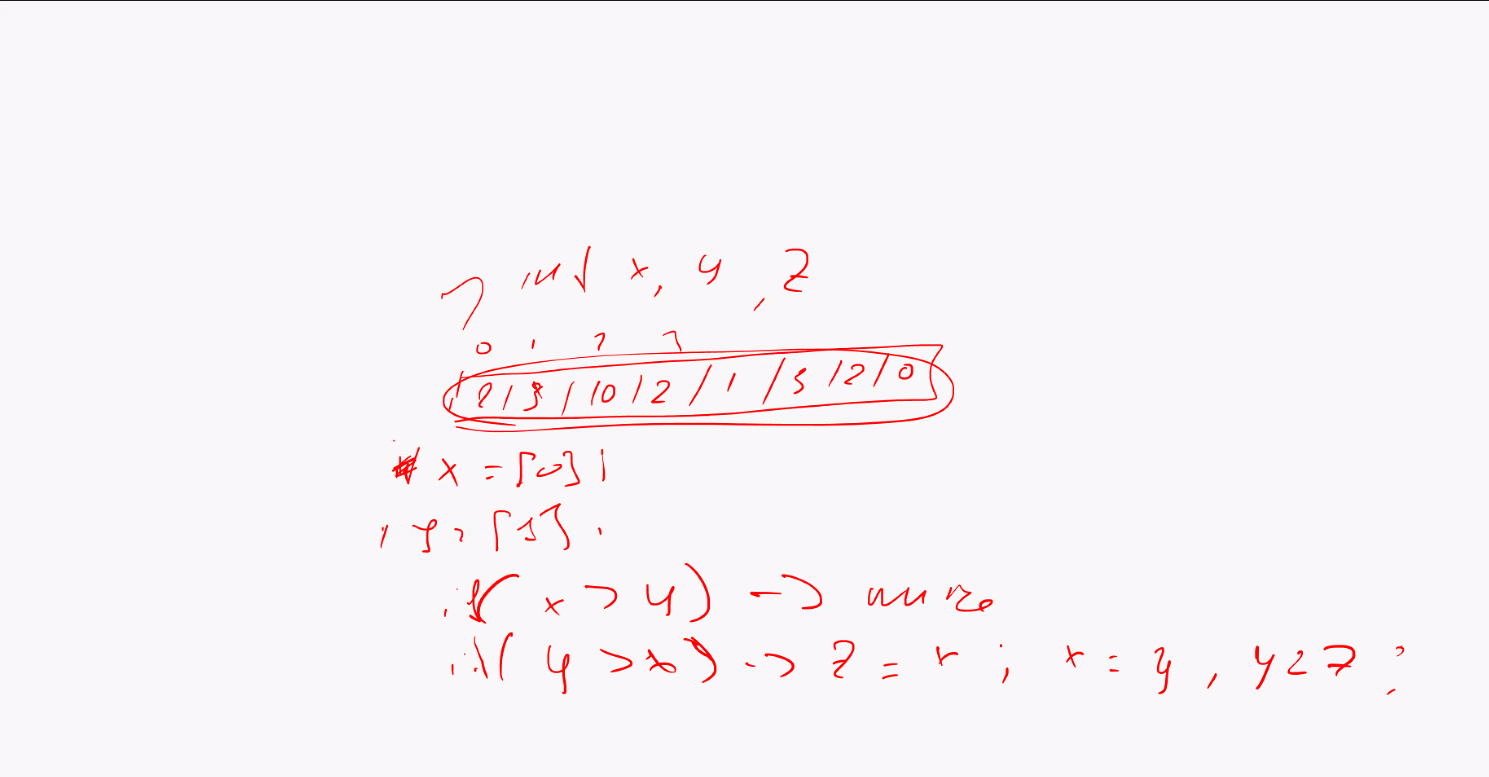 int x, y, z
0 1 2 3
2 / 3 / 10 / 2 / 1 / 3 / 2 / 0
x = [0]
y = [1]
if( x > y) ->
if( y > x) -> z = x ; x = y , y = z ;